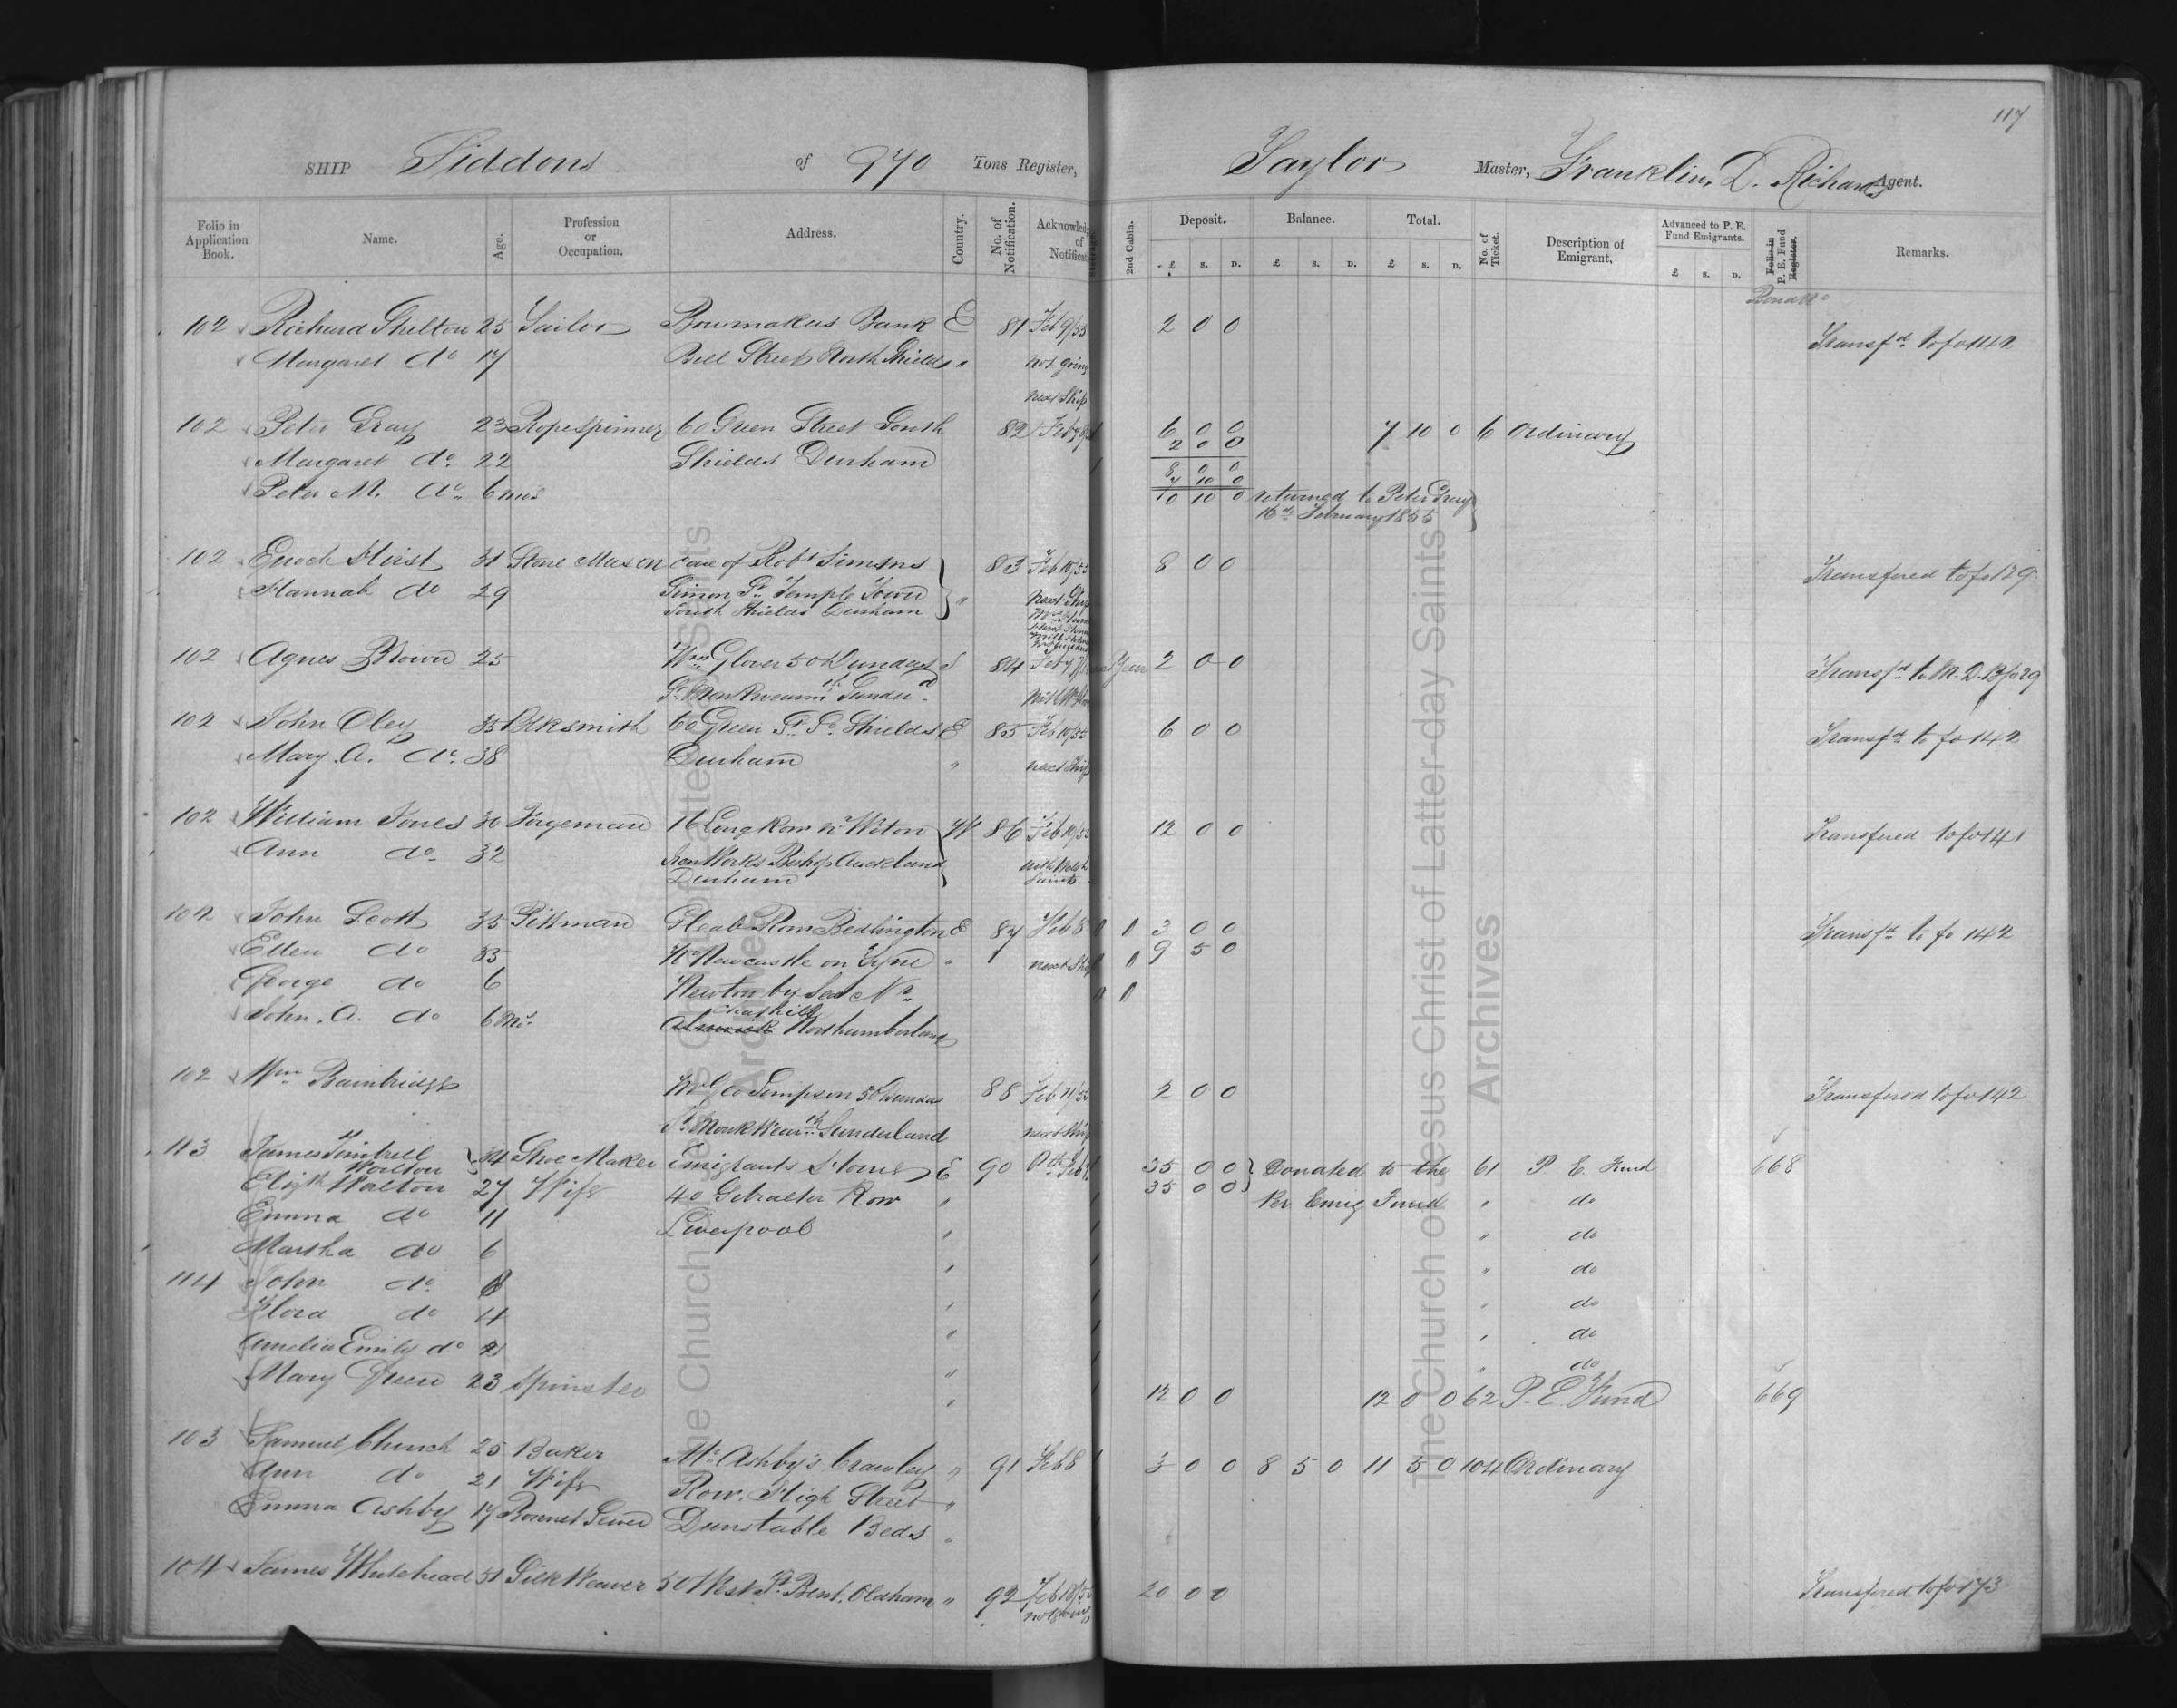 117
SHIP Siddons of 970 Tons Register, Taylor Master, Franklin D. Richards Agent.
Folio in Application Book. Name. Age. Profession or Occupation. Address. Country. No. of Notification. Acknowled of Notificati 2nd Cabin. Deposit. £ S. D. Balance. £ S. D. Total. £ S. D. No. of Ticket. Description of Emigrant. Advanced to P. E. Fund Emigrants. £ S. D. Folio in P. E. Fund Register. Remarks.
102 Richard Shelton 25 Sailor Bowmakers Bank E 81 Feb 9/55 2 0 0 Transfd. to fo 142
Margaret do 17 Bell Street North Shields " not going
next Ship
102 Peter Gray 23 Ropespinner 60 Green Street South 82 Feb 6 0 0 7 10 0 6 Ordinary
2 0 0
Margaret do. 22 Shields Durham 8 0 0
10 0
Peter M. do. 6 mos 10 10 0 returned to Peter Gray
16th February 1855
102 Enoch Hirst 31 Stone Mason care of Robt Simsns 83 Feb 10/55 8 0 0 Transfered to fo 129
Hannah do 29 Simon St. Temple Town " next Ship
South Shields Durham
102 Agnes Brown 25 Wm Glover 50 Dundas S 84 Feb 2 0 0 Transfd. to M. D. B fo 29
St. Monkwearmth Sunderd.
102 John Oley 35 Blksmith 60 Green St. So. Shields E 85 Feb 10/55 6 0 0 Transfd. to fo 142
Mary. A. do. 38 Durham " next Ship
102 William Jones 30 Forgeman 16 Long Row nr Witon W 86 Feb 10/55 12 0 0 Transfered to fo 141
Ann do. 32 Iron Works Bishop Auckland with Welsh
Durham Saints
102 John Scott 35 Pittman Gleab Row Bedlington E 87 Feb 8 3 0 0 Transfd. to fo 142
Ellen do 35 Nr Newcastle on Tyne " next Ship 9 5 0
George do 6 Newton by Sea Nr
Chathill
John. A. do 6 Mo. Alnwick Northumberland
102 Wm Bainbridge Mr Geo Simpson 50 Dundas 88 Feb 11/55 2 0 0 Transfered to fo 142
St. Monk Wearmth Sunderland next Ship
113 James Timbrell Walton 34 Shoe Maker Emigrants Home E 90 Feb 35 0 0 Donated to the 61 P. E. Fund 668
Elizth Walton 27 Wife 40 Gebralter Row " 35 0 0 Per Emig Fund " do
Emma do 11 Liverpool " " do
Martha do 6 " " do
114 John do. " " do
Flora do 4 " " do
Amelia Emily do " " do
Mary Green 23 Spinster " 12 0 0 12 0 0 62 P. E. Fund 669
103 Samuel Church 25 Baker Mr. Ashby's Crawley " 91 Feb 8 3 0 0 8 5 0 11 5 0 104 Ordinary
Ann do 21 Wife Row. High Street "
Emma Ashby 17 Bonnet Sewer Dunstable Beds "
104 James Whitehead 51 Silk Weaver 50 West St. Bent. Oldham " 92 Feb 10/55 20 0 0 Transfered to fo 173
not going
The Church of Jesus Christ of Latter-day Saints
Archives